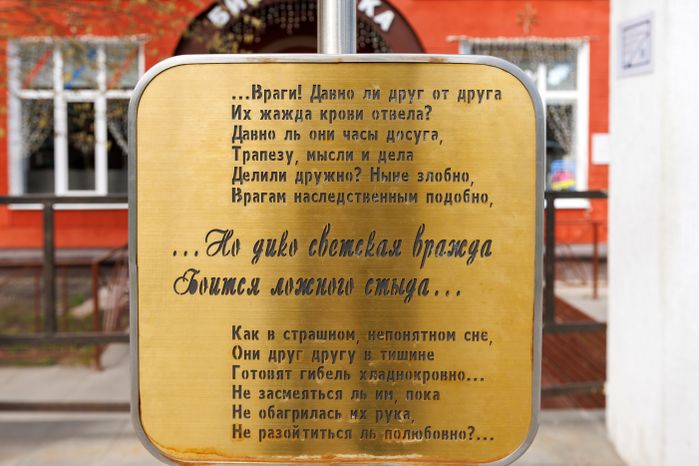 ...Враги! Давно ли друг от друга
Их жажда крови отвела?
Давно ль они часы досуга,
Трапезу, мысли и дела
Делили дружно? Ныне злобно,
Врагам наследственным подобно,
...Но дико светская вражда
Боится ложного стыда...
Как в страшном, непонятном сне,
Они друг другу в тишине
Готовят гибель хладнокровно...
Не засмеяться ль им, пока
Не обагрилась их рука,
Не разойтиться ль полюбовно?...